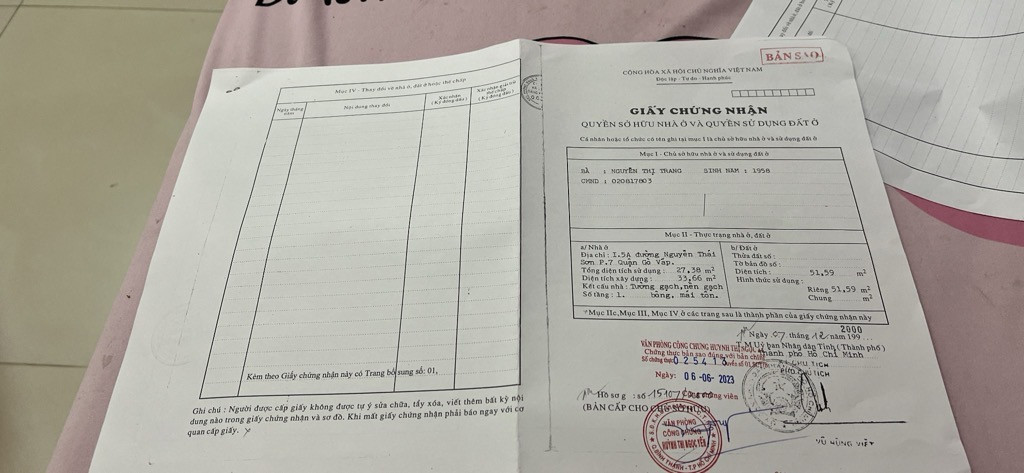 Mục IV - Thay đổi về nhà ở, đất ở hoặc thế chấp
Ngày tháng năm
Nội dung thay đổi
Xác nhận (Ký đóng dấu)
Xác nhận giải trừ thế chấp (Ký đóng dấu)
Kèm theo Giấy chứng nhận này có Trang bổ sung số: 01,
Ghi chú : Người được cấp giấy không được tự ý sửa chữa, tẩy xóa, viết thêm bất kỳ nội
dung nào trong giấy chứng nhận và sơ đồ. Khi mất giấy chứng nhận phải báo ngay với cơ
quan cấp giấy.
BẢN SAO
CỘNG HÒA XÃ HỘI CHỦ NGHĨA VIỆT NAM
Độc lập - Tự do - Hạnh phúc
GIẤY CHỨNG NHẬN
QUYỀN SỞ HỮU NHÀ Ở VÀ QUYỀN SỬ DỤNG ĐẤT Ở
Cá nhân hoặc tổ chức có tên ghi tại mục I là chủ sở hữu nhà ở và sử dụng đất ở
Mục I - Chủ sở hữu nhà ở và sử dụng đất ở
BÀ : NGUYỄN THỊ TRANG SINH NĂM : 1958
CMND : 020817803
Mục II - Thực trạng nhà ở, đất ở
a/ Nhà ở
Địa chỉ : 1.5A đường Nguyễn Thái
Sơn P.7 Quận Gò Vấp.
Tổng diện tích sử dụng : 27,38 m²
Diện tích xây dựng : 33,66 m²
Kết cấu nhà : Tường gạch, nền gạch
Số tầng : 1. bông, mái tôn.
b/ Đất ở
Thửa đất số :
Tờ bản đồ số :
Diện tích : 51,59 m²
Hình thức sử dụng :
Riêng 51,59 m²
Chung m²
Mục IIc, Mục III, Mục IV ở các trang sau là thành phần của giấy chứng nhận này
2000
Ngày 07 tháng 12 năm 199...
T.M Uỷ ban Nhân dân Tỉnh (Thành phố)
Thành phố Hồ Chí Minh
VĂN PHÒNG CÔNG CHỨNG HUỲNH THỊ NGỌC
Chứng thực bản sao đúng với bản chính
Số chứng thực 025413
Ngày: 06-06-2023
CHỦ TỊCH
Hồ sơ g : số
Công chứng viên
(BẢN CẤP CHO CHỦ SỞ HỮU)
VĂN PHÒNG
CÔNG CHỨNG
HUỲNH THỊ NGỌC YẾN
Q.BÌNH THẠNH - T.P HỒ CHÍ MINH
VŨ HÙNG VIỆT